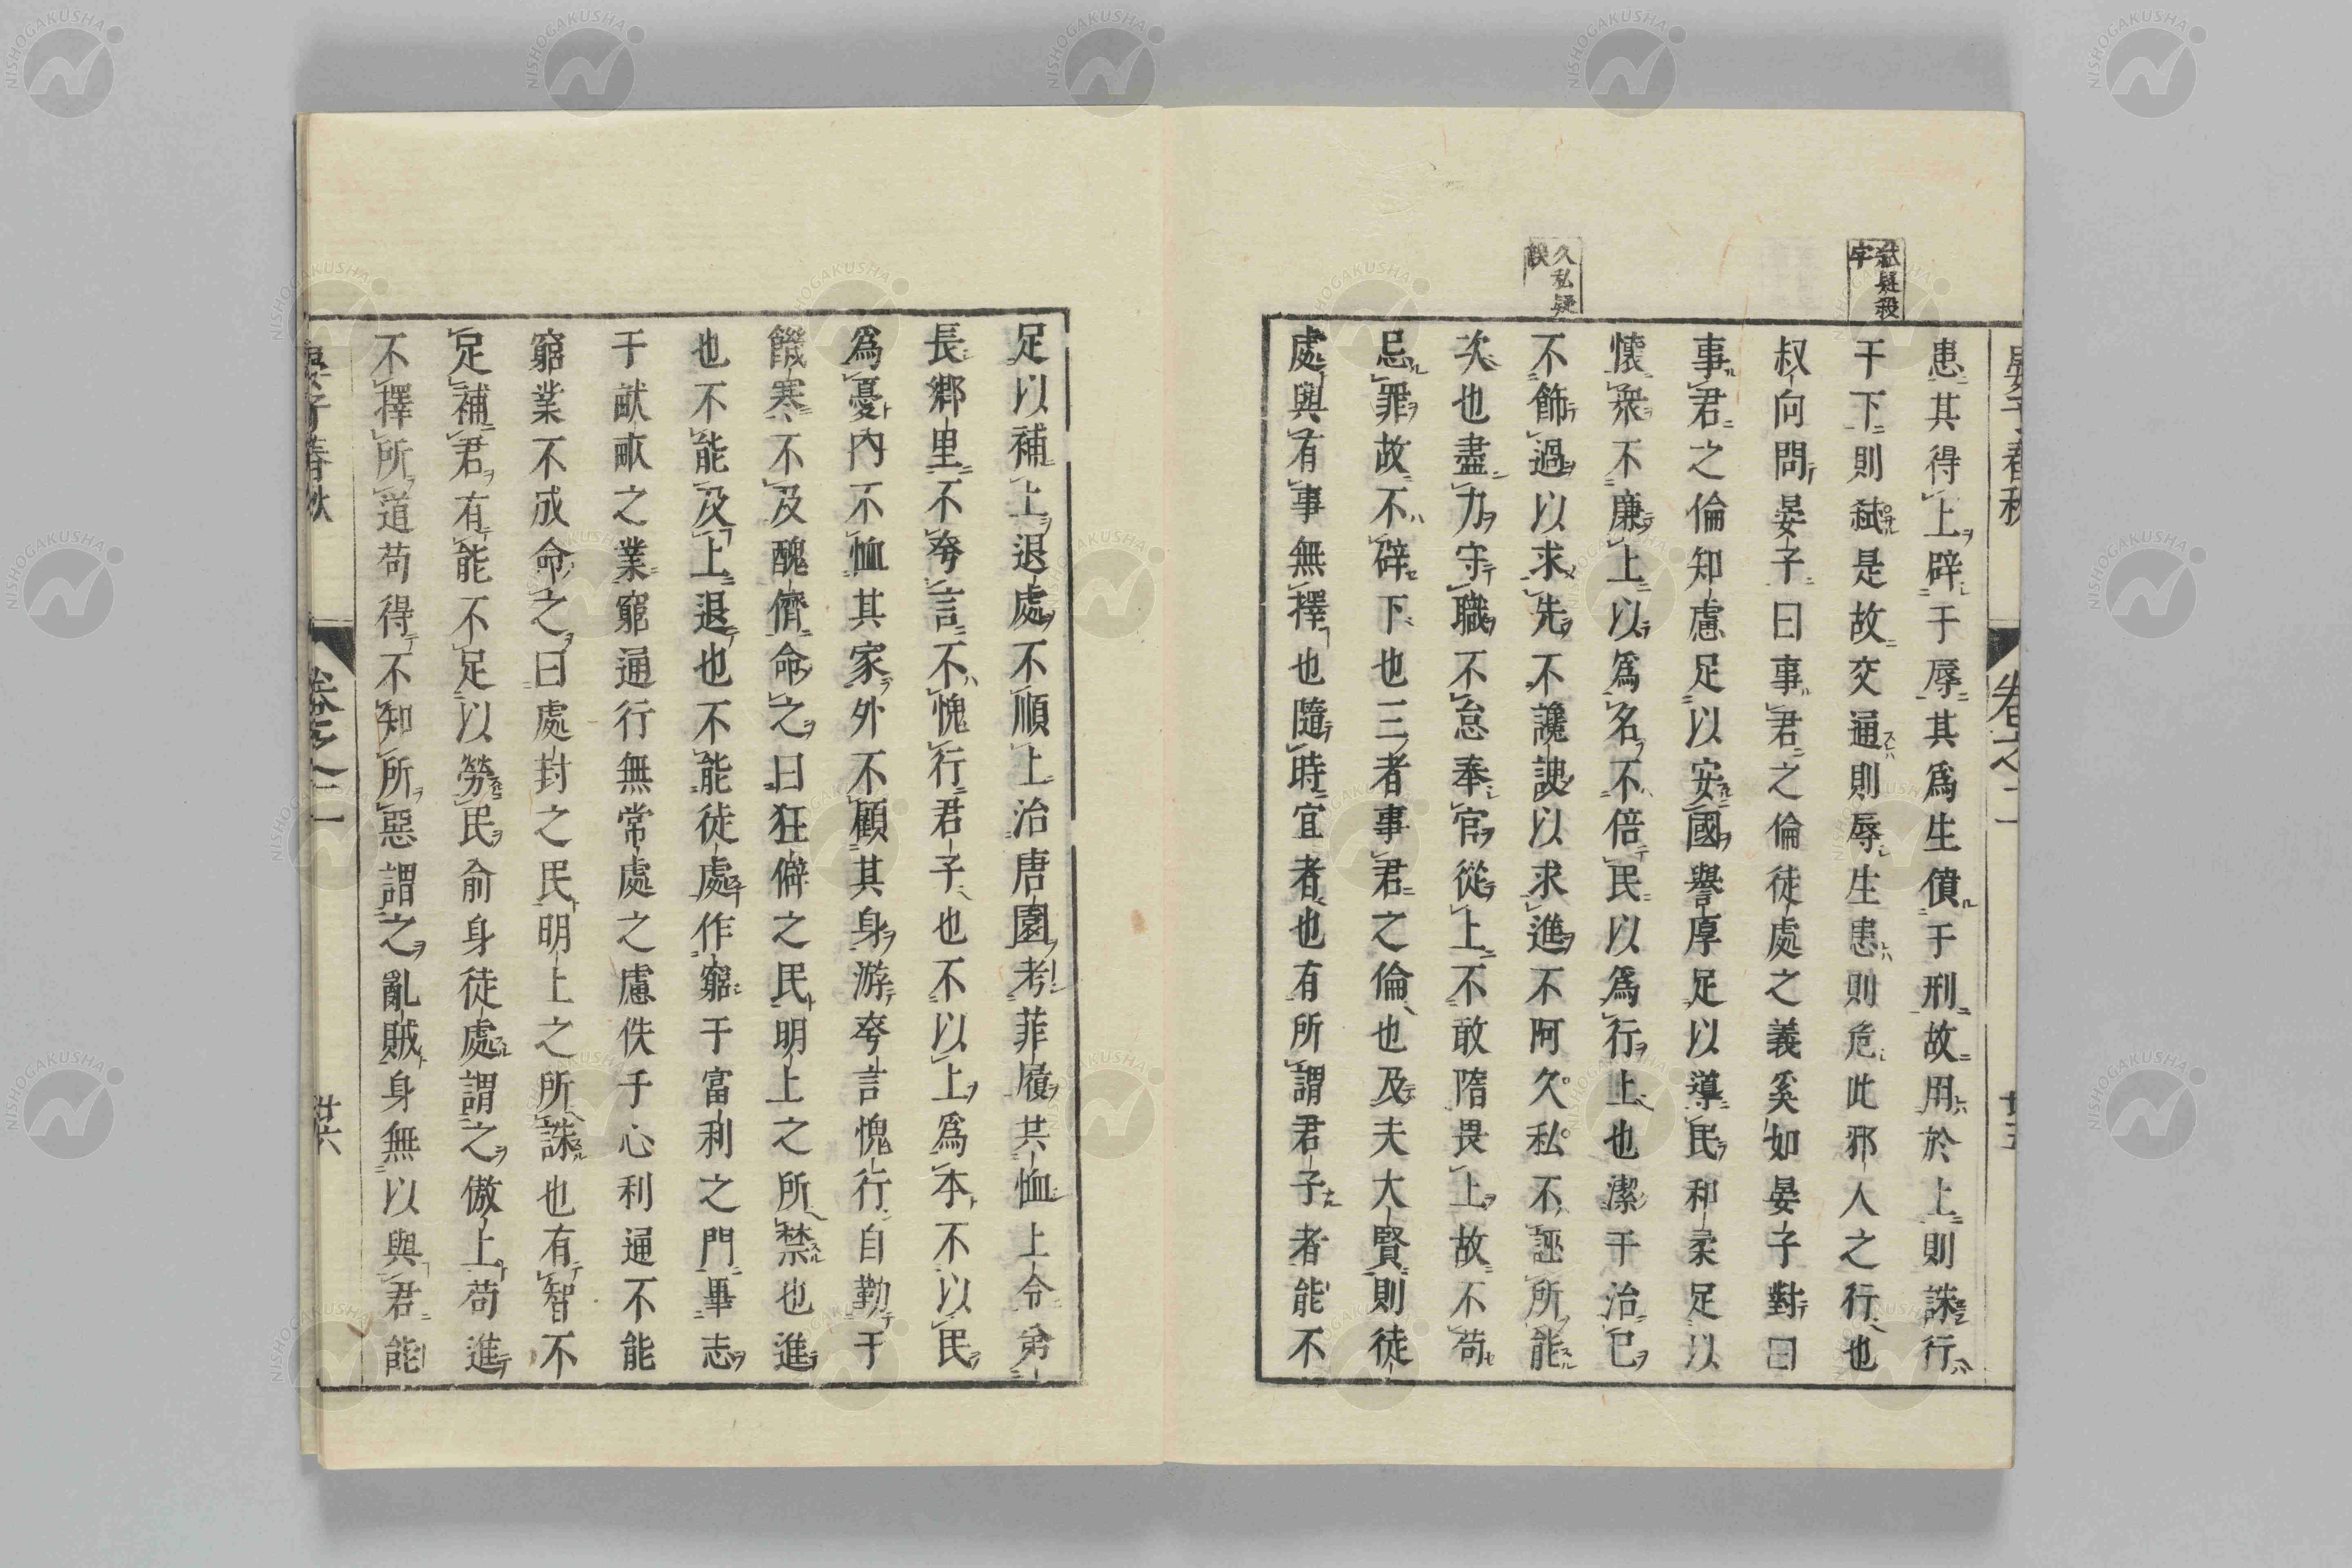 弑疑殺
字
久私疑
誤
晏子春秋
卷之二
患其得上辟于辱其爲生僨于刑故用於上則誅行
于下則弑是故交通則辱生患則危此邪人之行也
叔向問晏子曰事君之倫徒處之義奚如晏子對曰
事君之倫知慮足以安國譽厚足以導民和柔足以
懷衆不廉上以爲名不倍民以爲行上也潔于治已
不飾過以求先不讒諛以求進不阿久私不誣所能
次也盡力守職不怠奉官從上不敢隋畏上故不苟
忌罪故不辟下也三者事君之倫也及夫大賢則徒
處與有事無擇也隨時宜者也有所謂君子者能不
足以補上退處不順上治唐園考菲履共恤上令弟
長鄉里不夸言不愧行君子也不以上爲本不以民
爲憂內不恤其家外不顧其身游夸言愧行自勤于
饑寒不及醜儕命之曰狂僻之民明上之所禁也進
也不能及上退也不能徒處作窮于富利之門畢志
于畎畝之業窮通行無常處之慮佚于心利通不能
窮業不成命之曰處封之民明上之所誅也有智不
足補君有能不足以勞民俞身徒處謂之傲上苟進
不擇所道苟得不知所惡謂之亂賊身無以與君能
晏子春秋
卷之二
廿六